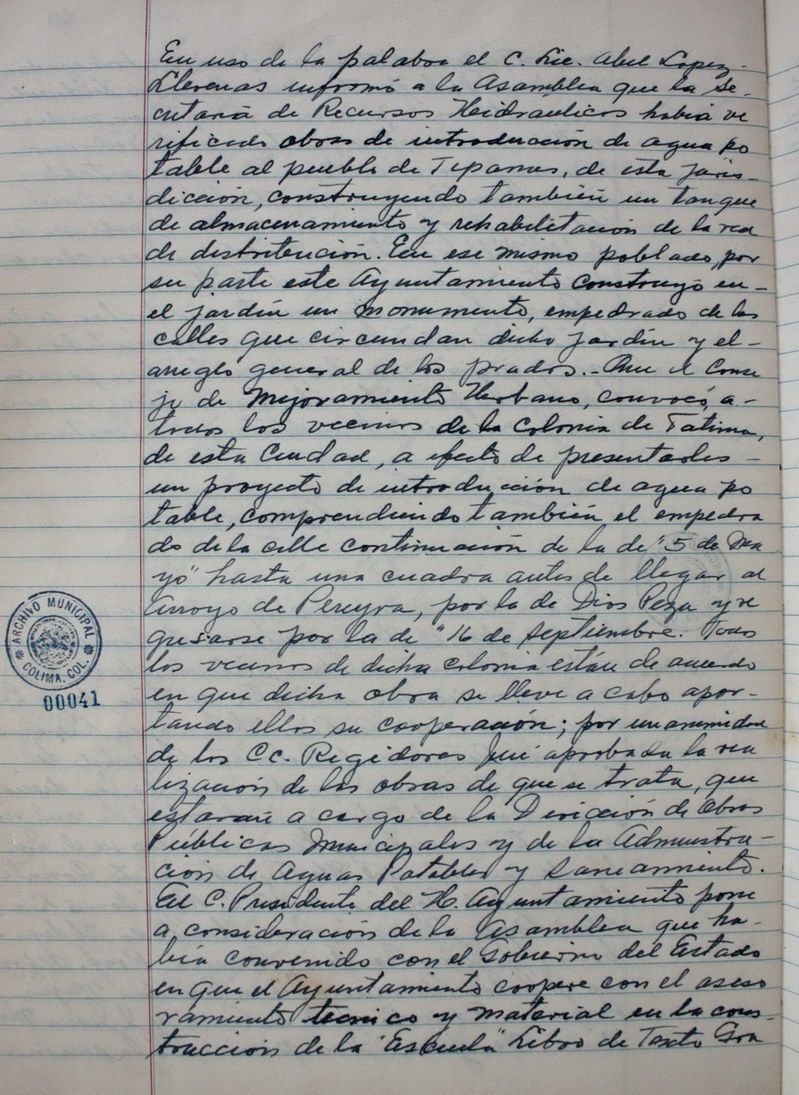 En uso de la palabra el C. Lic. Abel Lopez
Llerenas informó a la Asamblea que la Se-
cretaría de Recursos Hidráulicos había ve
rificado obras de introducción de agua po
table al pueblo de Tepames, de esta juris-
dicción, construyendo también un tanque
de almacenamiento y rehabilitación de la red
de distribución. En ese mismo poblado, por
su parte este Ayuntamiento construyó en-
el jardín un monumento, empedrado de las
calles que circundan dicho jardín y el-
arreglo general de los prados.- Que el Conse
jo de Mejoramiento Urbano, convocó, a-
todos los vecinos de la Colonia de Fatima,
de esta Ciudad, a efecto de presentarles-
un proyecto de introducción de agua po
table, comprendiendo también el empedra
do de la calle continuación de la de "5 de Ma
yo" hasta una cuadra antes de llegar al
Arroyo de Pereyra, por la de Dios Peza y re
gresarse por la de "16 de Septiembre. Todos
los vecinos de dicha colonia están de acuerdo
en que dicha obra se lleve a cabo apor-
tando ellos su cooperación; por unanimidad
de los CC. Regidores fué aprobada la rea
lización de las obras de que se trata, que
estarán a cargo de la Dirección de Obras
Públicas Municipales y de la Administra-
ción de Aguas Potables y Saneamiento.
El C. Presidente del H. Ayuntamiento pone
a consideración de la Asamblea que ha-
bía convenido con el Gobierno del Estado
en que el Ayuntamiento coopere con el aseso
ramiento técnico y material en la cons-
trucción de la "Escuela" Libro de Texto Gra
ARCHIVO MUNICIPAL
COLIMA, COL.
00041